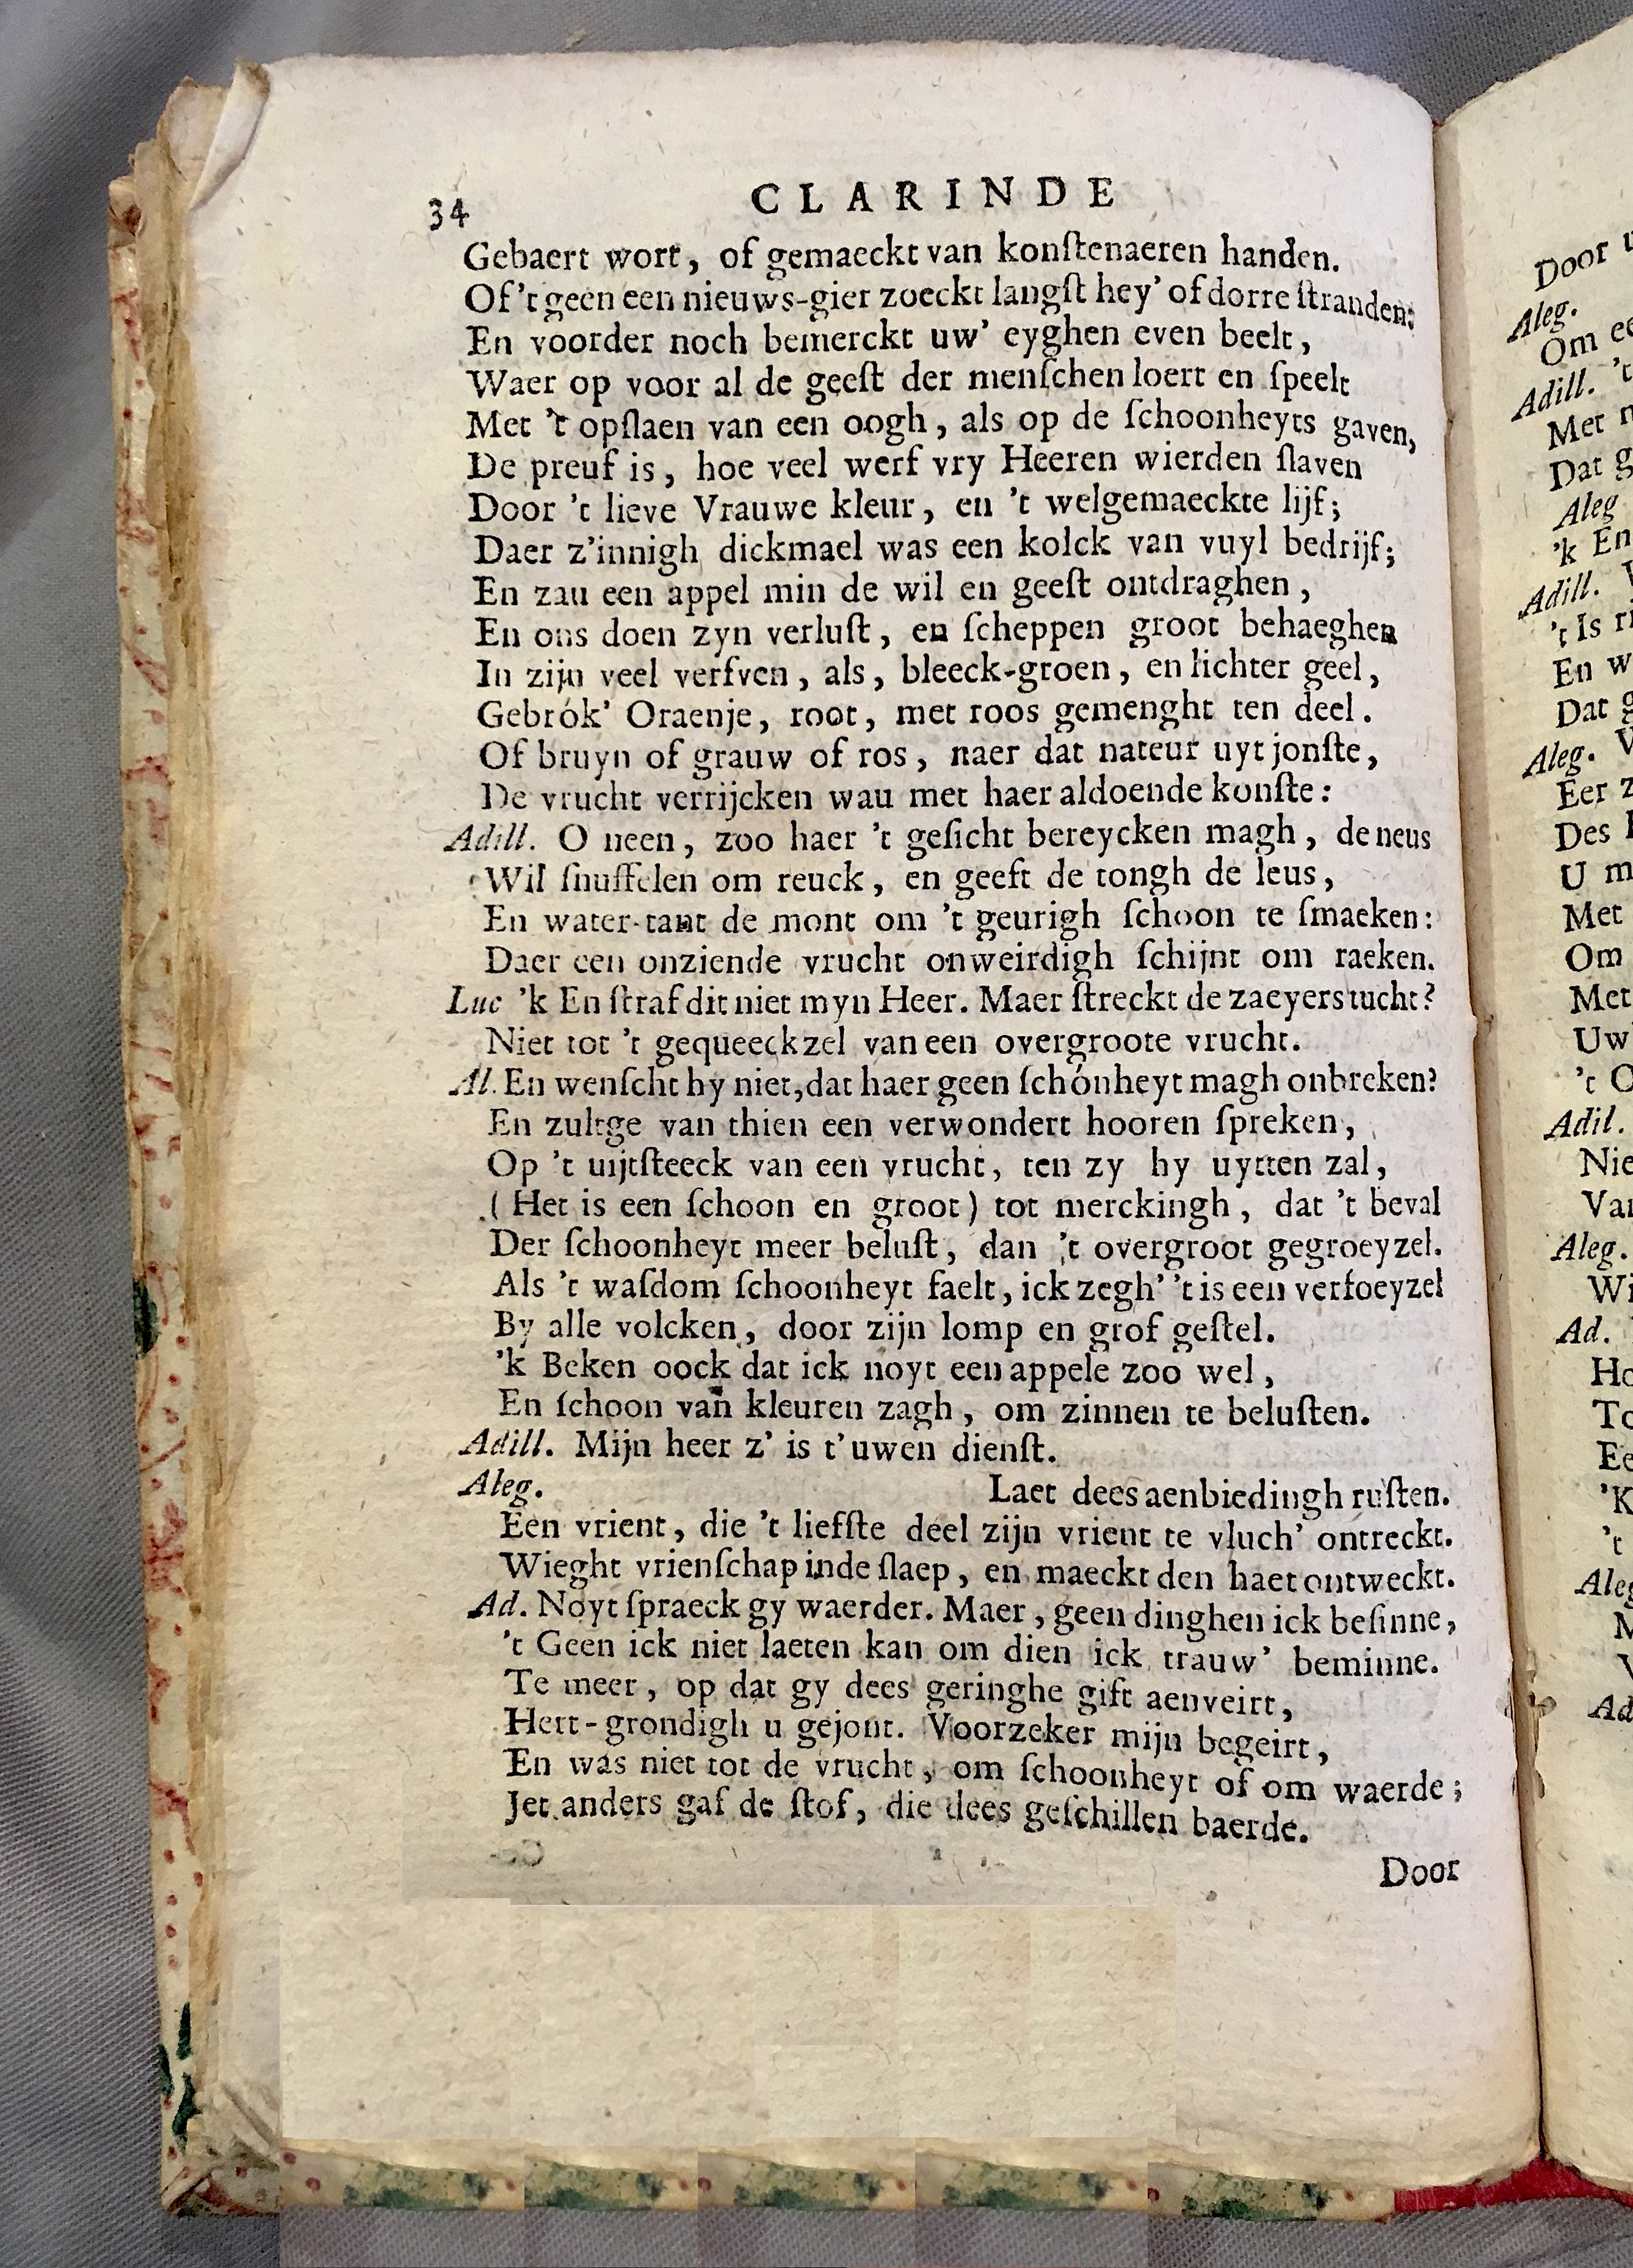 34 CLARINDE
Gebaert wort, of gemaeckt van konſtenaeren handen.
Of 't geen een nieuws-gier zoeckt langſt hey' of dorre ſtranden:
En voorder noch bemerckt uw' eyghen even beelt,
Waer op voor al de geeſt der menſchen loert en ſpeelt
Met 't opſlaen van een oogh, als op de ſchoonheyts gaven,
De preuf is, hoe veel werf vry Heeren wierden ſlaven
Door 't lieve Vrauwe kleur, en 't welgemaeckte lijf;
Daer z'innigh dickmael was een kolck van vuyl bedrijf;
En zau een appel min de wil en geeſt ontdraghen,
En ons doen zyn verluſt, en ſcheppen groot behaeghen
In zijn veel verfven, als, bleeck-groen, en lichter geel,
Gebrók' Oraenje, root, met roos gemenght ten deel.
Of bruyn of grauw of ros, naer dat nateur uyt jonſte,
De vrucht verrijcken wau met haer aldoende konſte:
Adill. O neen, zoo haer 't geſicht bereycken magh, de neus
Wil ſnuffelen om reuck, en geeft de tongh de leus,
En water-tant de mont om 't geurigh ſchoon te ſmaeken:
Daer een onziende vrucht onweirdigh ſchijnt om raeken.
Luc 'k En ſtraf dit niet myn Heer. Maer ſtreckt de zaeyers tucht?
Niet tot 't gequeeckzel van een overgroote vrucht.
Al. En wenſcht hy niet, dat haer geen ſchónheyt magh onbreken?
En zultge van thien een verwondert hooren ſpreken,
Op 't uijtſteeck van een vrucht, ten zy hy uytten zal,
(Het is een ſchoon en groot) tot merckingh, dat 't beval
Der ſchoonheyt meer beluſt, dan 't overgroot gegroeyzel.
Als 't waſdom ſchoonheyt faelt, ick zegh' 't is een verfoeyzel
By alle volcken, door zijn lomp en grof geſtel.
'k Beken oock dat ick noyt een appele zoo wel,
En ſchoon van kleuren zagh, om zinnen te beluſten.
Adill. Mijn heer z' is t'uwen dienſt.
Aleg. Laet dees aenbiedingh ruſten.
Een vrient, die 't liefſte deel zijn vrient te vluch' ontreckt.
Wieght vrienſchap inde ſlaep, en maeckt den haet ontweckt.
Ad. Noyt ſpraeck gy waerder. Maer, geen dinghen ick beſinne,
't Geen ick niet laeten kan om dien ick trauw' beminne.
Te meer, op dat gy dees geringhe gift aenveirt,
Hert-grondigh u gejont. Voorzeker mijn begeirt,
En was niet tot de vrucht, om ſchoonheyt of om waerde;
Jet anders gaf de ſtof, die dees geſchillen baerde.
Door
Door
Aleg.
Om
Adill. 't
Met
Dat
Aleg
'k En
Adill.
't Is
En
Dat
Aleg.
Eer
Des
U
Met
Om
Met
Uw
't
Adil.
Nie
Van
Aleg.
Wi
Ad.
Ho
To
Ee
'K
't
Aleg
Ad